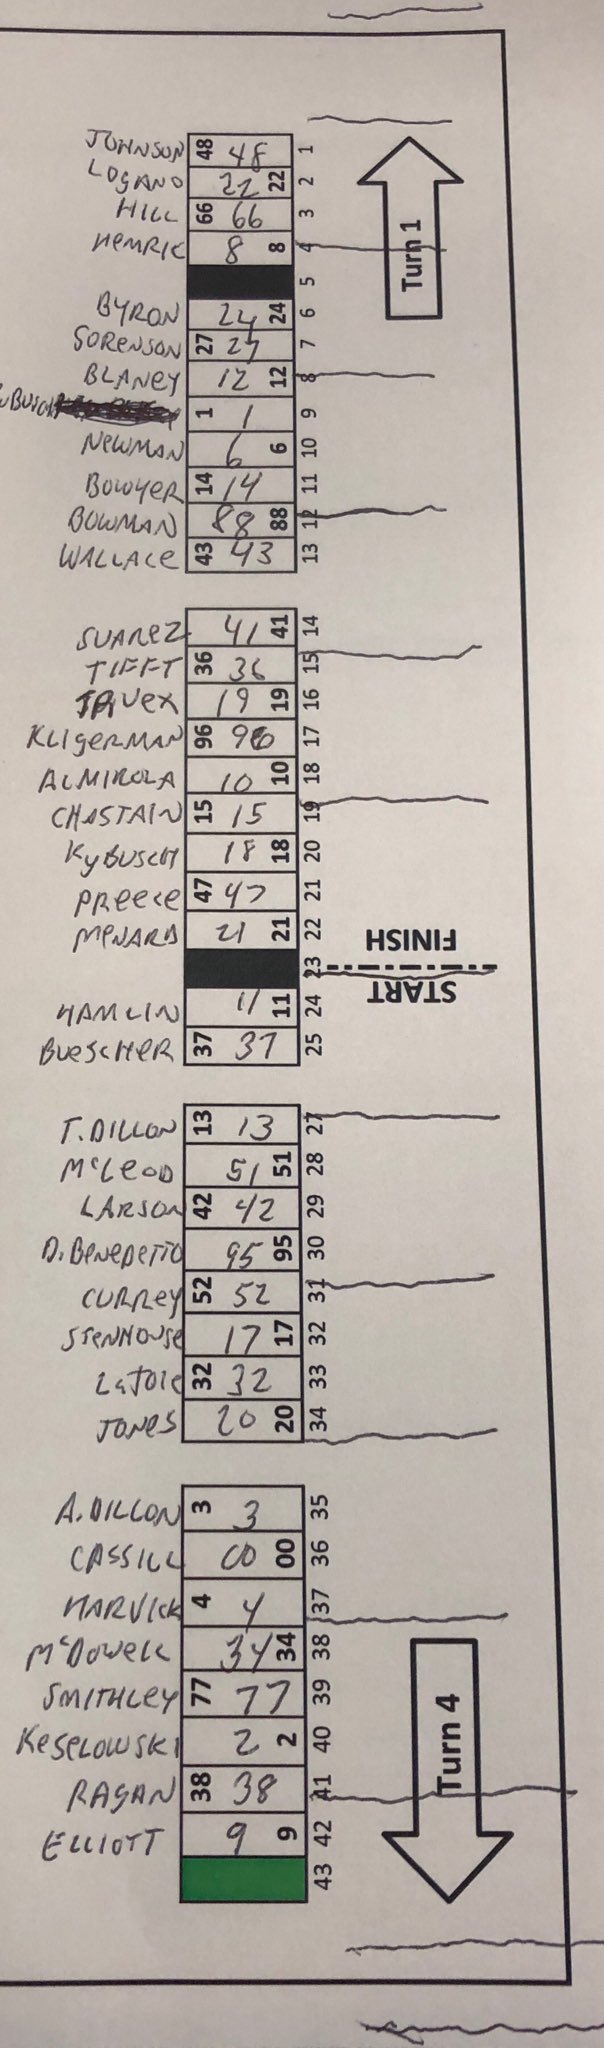 JOHNSON 48 48 1
LOGANO 22 22 2
HILL 66 66 3
HEMRIC 8 8 4
5
BYRON 24 24 6
SORENSON 27 27 7
BLANEY 12 12 8
BUSCH 1 1 9
NEWMAN 6 6 10
BOWYER 14 14 11
BOWMAN 88 88 12
WALLACE 43 43 13
Turn 1
SUAREZ 41 41 14
TIFFT 36 36 15
TRUEX 19 19 16
KLIGERMAN 96 96 17
ALMIROLA 10 10 18
CHASTAIN 15 15 19
KyBUSCH 18 18 20
PREECE 47 47 21
MENARD 21 21 22
FINISH
23
START
HAMLIN 11 11 24
BUESCHER 37 37 25
T. DILLON 13 13 27
McLEOD 51 51 28
LARSON 42 42 29
D. BENEDETTO 95 95 30
CURREY 52 52 31
STENHOUSE 17 17 32
LaJOIE 32 32 33
JONES 20 20 34
A. DILLON 3 3 35
CASSILL 00 00 36
HARVICK 4 4 37
McDOWELL 34 34 38
SMITHLEY 77 77 39
KESELOWSKI 2 2 40
RAGAN 38 38 41
ELLIOTT 9 9 42
43
Turn 4